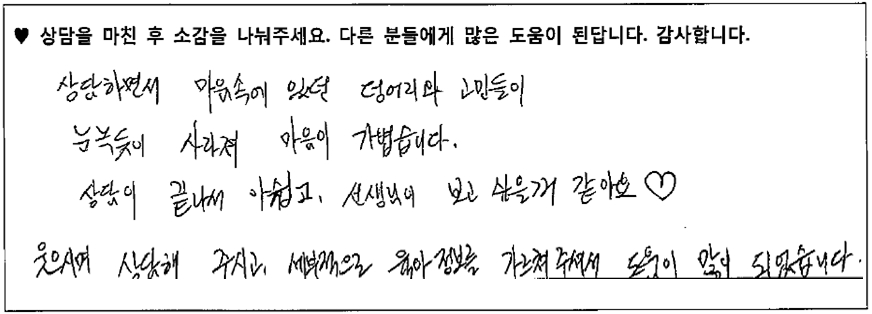 ♥ 상담을 마친 후 소감을 나눠주세요. 다른 분들에게 많은 도움이 된답니다. 감사합니다.
상담하면서 마음속에 있던 덩어리와 고민들이
눈녹듯이 사라져 마음이 가볍습니다.
상담이 끝나서 아쉽고, 선생님이 보고 싶을거 같아요 ♡
웃으시며 상담해 주시고, 세부적으로 육아정보를 가르쳐주셔서 도움이 많이 되었습니다.